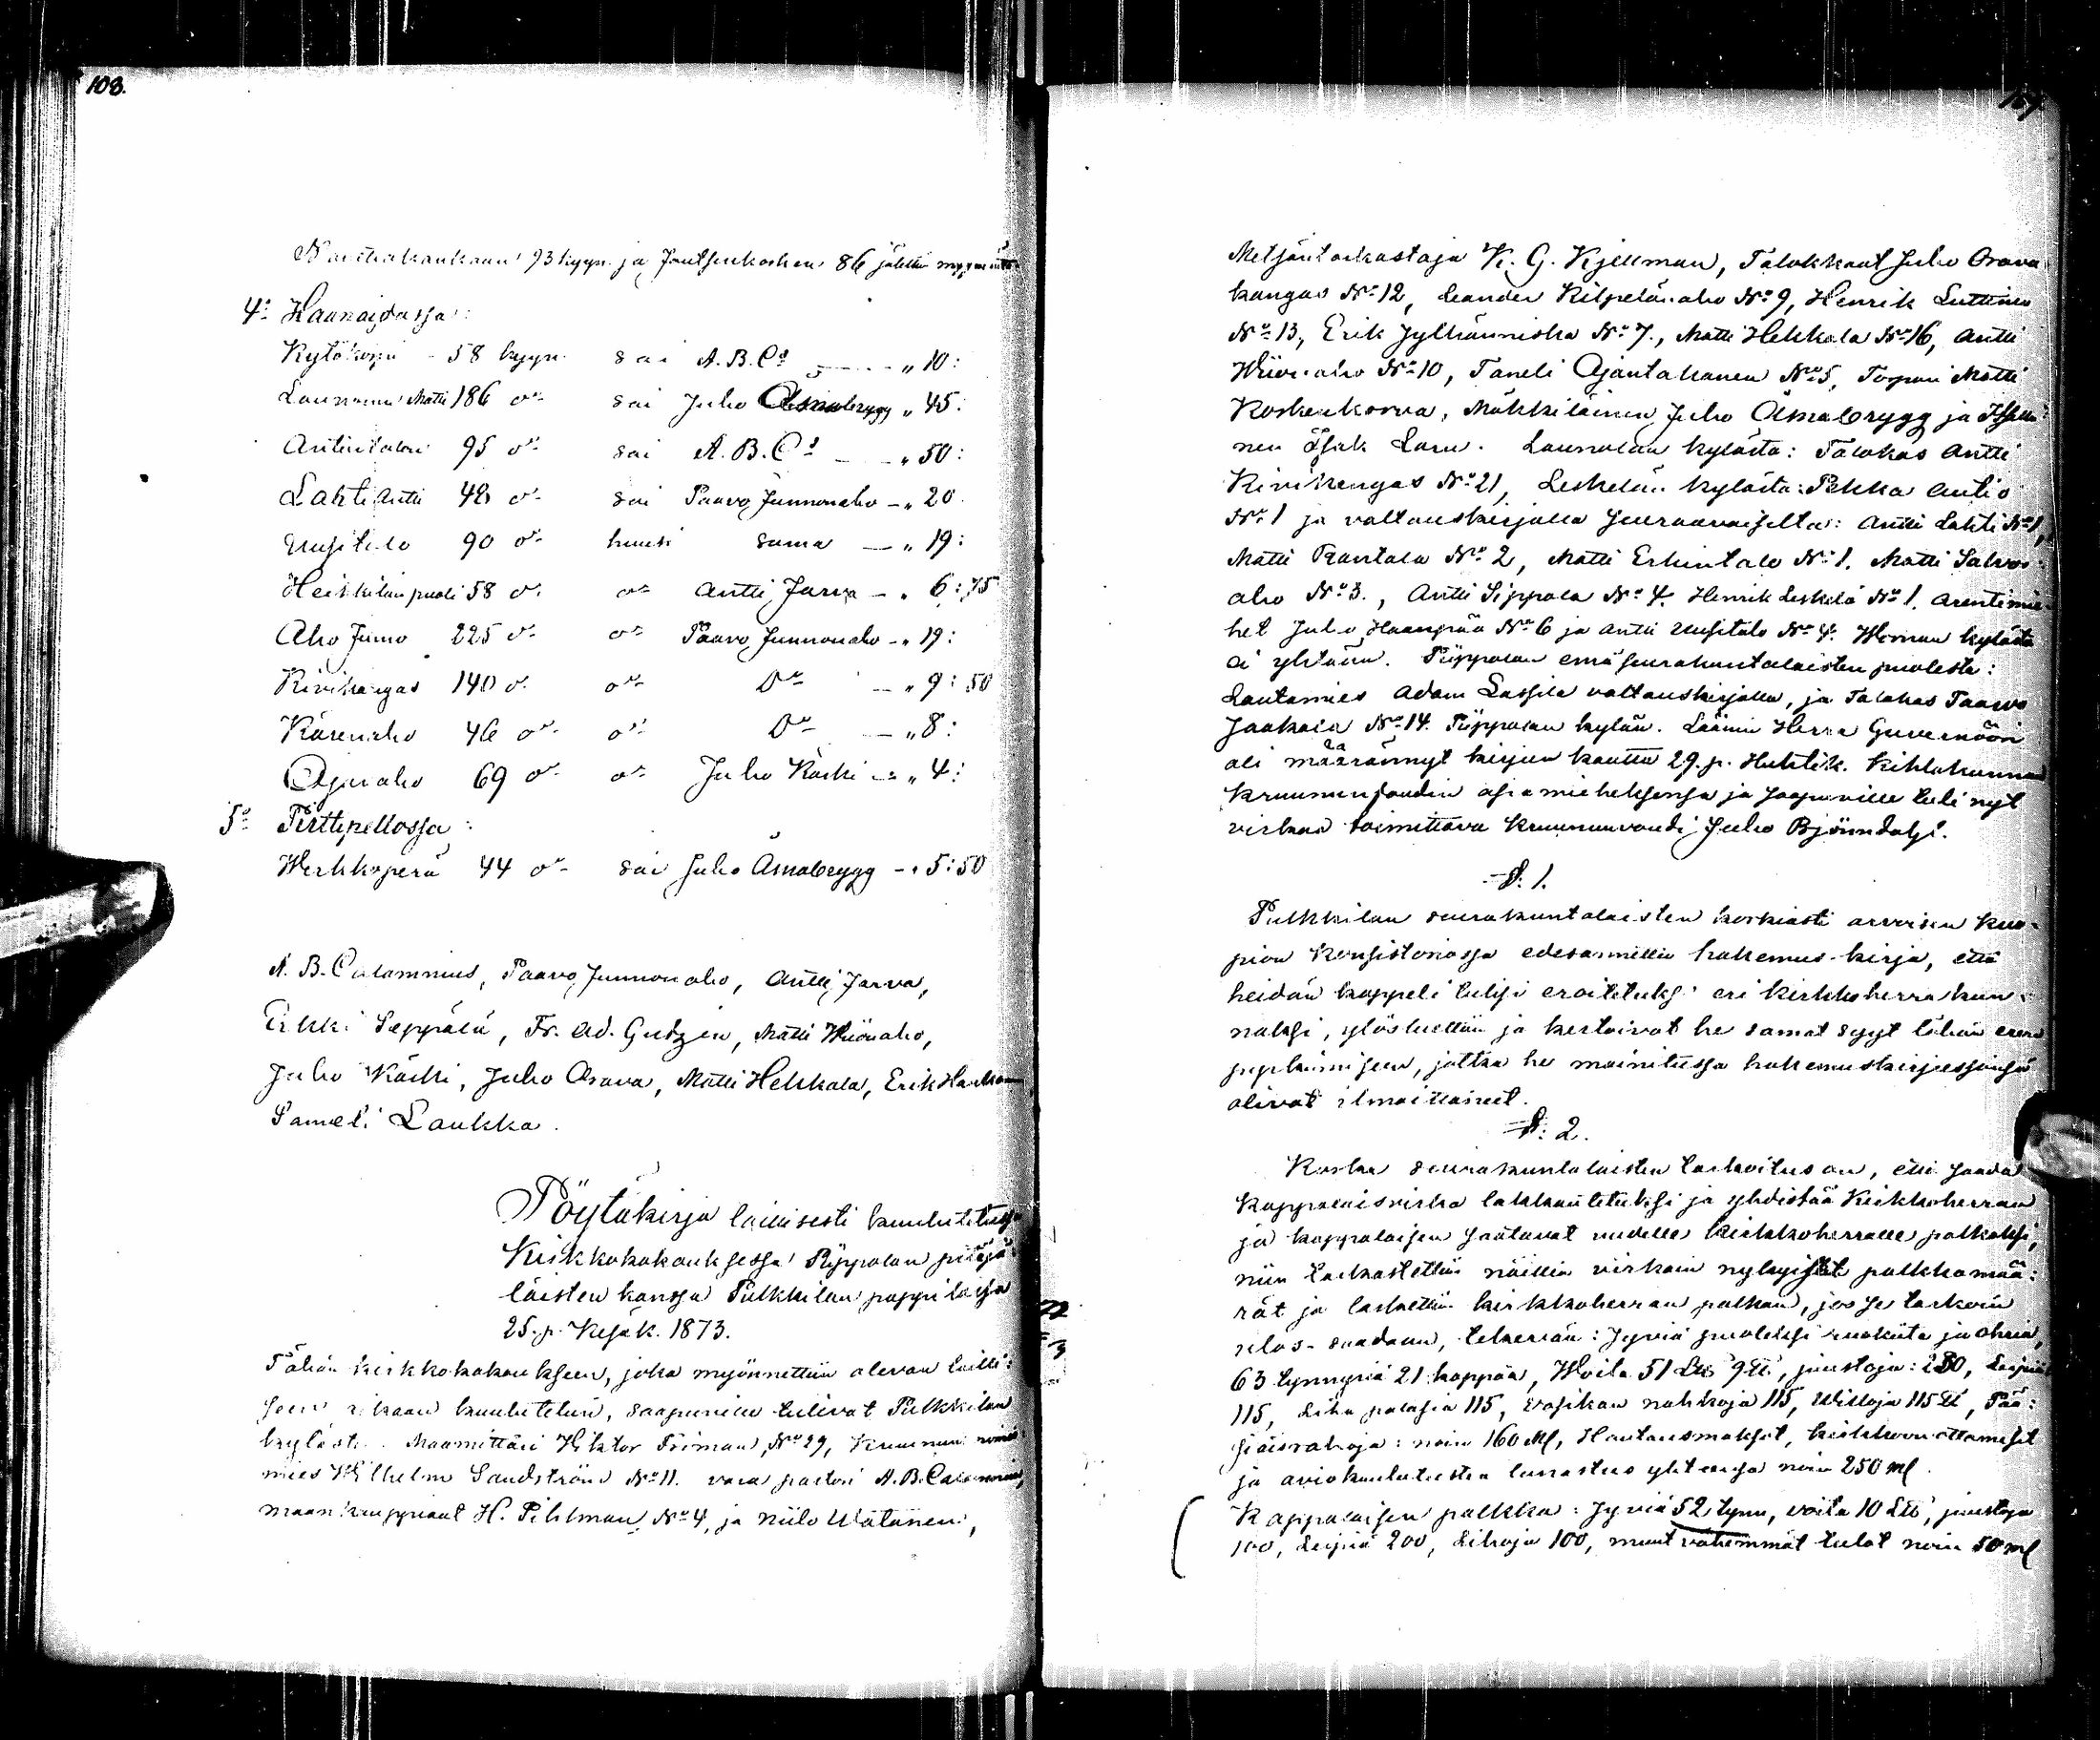 108.
93 kyyn. ja Jautsenkosken 86 jätettiin myymättä
4:o Haanojdassa:
Kytökorpi - 58 kyyn. sai A. B. C:s - - " 10:
Launonen Matti 186 d:o sai Juho Åmabrygg " 45:
Antintalon 95 d:o sai A. B. C:s - - " 50:
Lahti Antti 48 d:o sai Paavo Junnonaho - " 20.
Uusitalo 90 d:o huusi sama - " 19:
Heikkilän puoli 58 d:o d:o Antti Jarva - " 6:75
Aho Junno 225 d:o d:o Paavo Junnonaho - " 19:
Kivikangas 140 d:o d:o D:o - " 9:50
Kärenaho 46 d:o d:o D:o - " 8:
69 d:o d:o Juho Käski - " 4:
5:o Pirttipellossa:
Werkkoperä 44 d:o sai Juho Åmabrygg - " 5:50
A. B. Calamnius, Paavo Junnonaho, Antti Jarva,
Erkki Seppälä, Fr. Ad. Gutzen, Matti Wiionaho,
Juho Käski, Juho Orava, Matti Hekkala, Erik
Sameli Laukka.
Pöytäkirja laillisesti kuulutetussa
Kirkkokokouksessa Piippolan pitäjä=
läisten kanssa Pulkkilan pappilassa
25. p. Kesäk. 1873.
Tähän kirkkokokoukseen, joka myönnettiin olevan lailli=
seen aikaan kuulutetun, saapuville tulivat Pulkkilan
kylästä: Maamittari Viktor Friman N:o 29, Kruunun nimis=
mies Wilhelm Sandström N:o 11. vara pastori A. B. Calamnius,
maan kauppiaat H. Pihlman N:o 4, ja Niilo Wätänen,
109.
Metsäntarkastaja K. G. Kjellman, Talokkaat Juho Orava
kangas N:o 12, Leander Kilpelänaho N:o 9, Henrik Luttinen
N:o 13, Erik Jylhänniska N:o 7., Matti Hekkala N:o 16, Antti
Wiionaho N:o 10, Taneli Ajantahanen N:o 5, Torpari Matti
Koskenkorva, Mökkiläinen Juho Åmabrygg ja Itselli=
nen Isak Laru. Launolan kylästä: Talokas Antti
Kivikangas N:o 21, Leskelän kylästä: Pekka Antio
N:o 1 ja valtauskirjalla seuraavaiselta: Antti Lahti N:o 1,
Matti Rantala N:o 2, Matti Erkintalo N:o 1. Matti Salvos=
aho N:o 3., Antti Sippola N:o 4. Henrik Leskelä N:o 1. Arentimie=
het Juho Haanpää N:o 6 ja Antti Uusitalo N:o 4. Wornan kylästä
ei yhtään. Piippolan emäseurakuntalaisten puolesta:
Lautamies Adam Lassila valtauskirjalla, ja Talokas Taavo
Jaakola N:o 14. Piippolan kylän. Läänin Herra Guvernööri
oli määrännyt kirjan kautta 29. p. Huhtik. Kihlakunnan
kruununvoudin asiamieheksensä ja saapuville tuli nyt
virkaa toimittava kruununvouti Juho Björndahl.
§: 1.
Pulkkilan seurakuntalaisten korkiasti arvoisen Kuo=
pion Konsistoriossa edesannettu hakemus-kirja, että
heidän kappeli tulisi eroitetuksi eri kirkkoherrakun=
naksi, ylösluettiin ja kertoivat he samat syyt tähän eroon
pyrkimiseen, jotka he mainitussa hakemuskirjassansa
olivat ilmoittaneet.
§: 2.
Koska seurakuntalaisten tarkoitus on, että saada
kappalaisvirka lakkautetuksi ja yhdistää Kirkkoherran
ja kappalaisen saatavat uudelle kirkkoherralle palkaksi,
niin tarkastettiin näiden virkain nykyiset palkkamää=
rät ja laskettiin kirkkoherran palkan, jos se tarkoin
ulos-saadaan, tekevän: Jyviä puoleksi rukiita ja ohria,
63 tynnyriä 21 kappaa, Woita 51 L℔ 9 ℔, juustoja: 230, Leipiä
115, Liha palasia 115, vasikan nahkoja 115, Willoja 115 ℔, Pää=
siäisrahoja: noin 160 M, Hautausmaksut, kirkkoonottamiset
ja aviokuulutusten lunastus yhteensä noin 250 M.
Kappalaisen palkka: Jyviä 52 tynn, voita 10 L℔, juustoja
100, Leipiä 200, Lihoja 100, muut vähemmät tulot noin 50 M